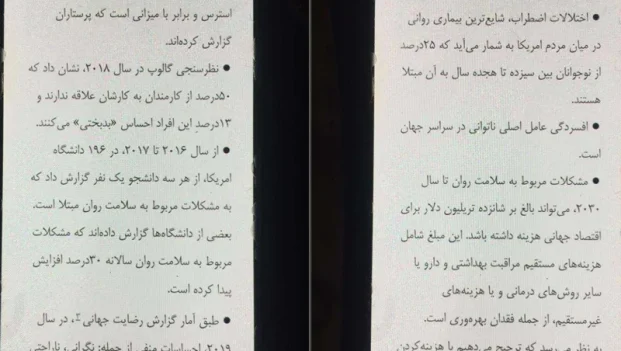 ● اختلالات اضطراب، شایع‌ترین بیماری روانی
در میان مردم امریکا به شمار می‌آید که ۲۵درصد
از نوجوانان بین سیزده تا هجده سال به آن مبتلا
هستند.
● افسردگی عامل اصلی ناتوانی در سراسر جهان
است.
● مشکلات مربوط به سلامت روان تا سال
۲۰۳۰، می‌تواند بالغ بر شانزده تریلیون دلار برای
اقتصاد جهانی هزینه داشته باشد. این مبلغ شامل
هزینه‌های مستقیم مراقبت بهداشتی و دارو یا
سایر روش‌های درمانی و یا هزینه‌های
غیرمستقیم، از جمله فقدان بهره‌وری است.
به نظر می‌رسد که ترجیح می‌دهیم با هزینه‌کردن
استرس و برابر با میزانی است که پرستاران
گزارش کرده‌اند.
● نظرسنجی گالوپ در سال ۲۰۱۸، نشان داد که
۵۰درصد از کارمندان به کارشان علاقه ندارند و
۱۳درصدِ این افراد احساس «بدبختی» می‌کنند.
● از سال ۲۰۱۶ تا ۲۰۱۷، در ۱۹۶ دانشگاه
امریکا، از هر سه دانشجو یک نفر گزارش داد که
به مشکلات مربوط به سلامت روان مبتلا است.
بعضی از دانشگاه‌ها گزارش داده‌اند که مشکلات
مربوط به سلامت روان سالانه ۳۰درصد افزایش
پیدا کرده است.
● طبق آمار گزارش رضایت جهانی، در سال
۲۰۱۹، احساسات منفی از جمله: نگرانی، ناراحتی